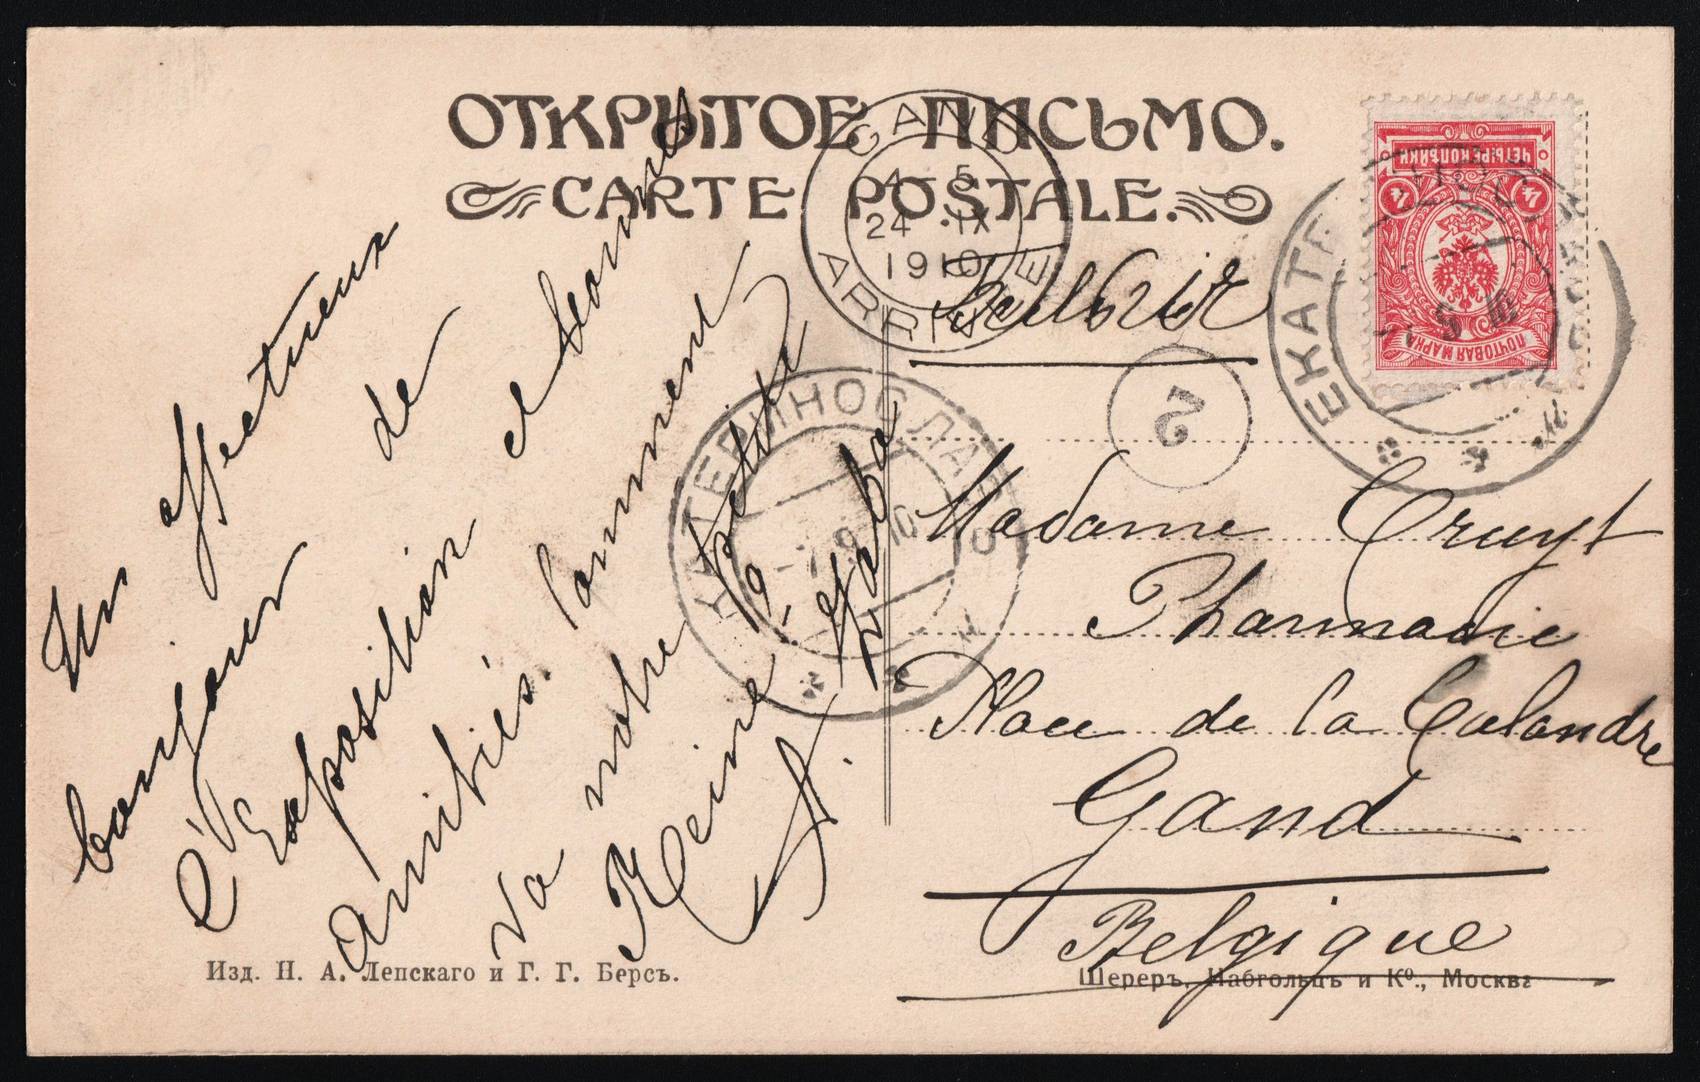 ОТКРЫТОЕ ПИСЬМО.
CARTE POSTALE.
GAND
4-5
24 IX
1910
ARRIVÉE
ЧЕТЫРЕ КОПѢЙКИ
4 4
ПОЧТОВАЯ МАРКА
ЕКАТЕРИНОСЛАВЪ
9 10
2
Un affectueux
bonjour de
l'Exposition et bonnes
amitiés. Comment
va notre petite
Reine?
Madame Cruyt
Pharmacie
Place de la Calandre
Gand
Belgique
Изд. Н. А. Лепскаго и Г. Г. Берсъ.
Шереръ, Набгольцъ и Кº., Москва